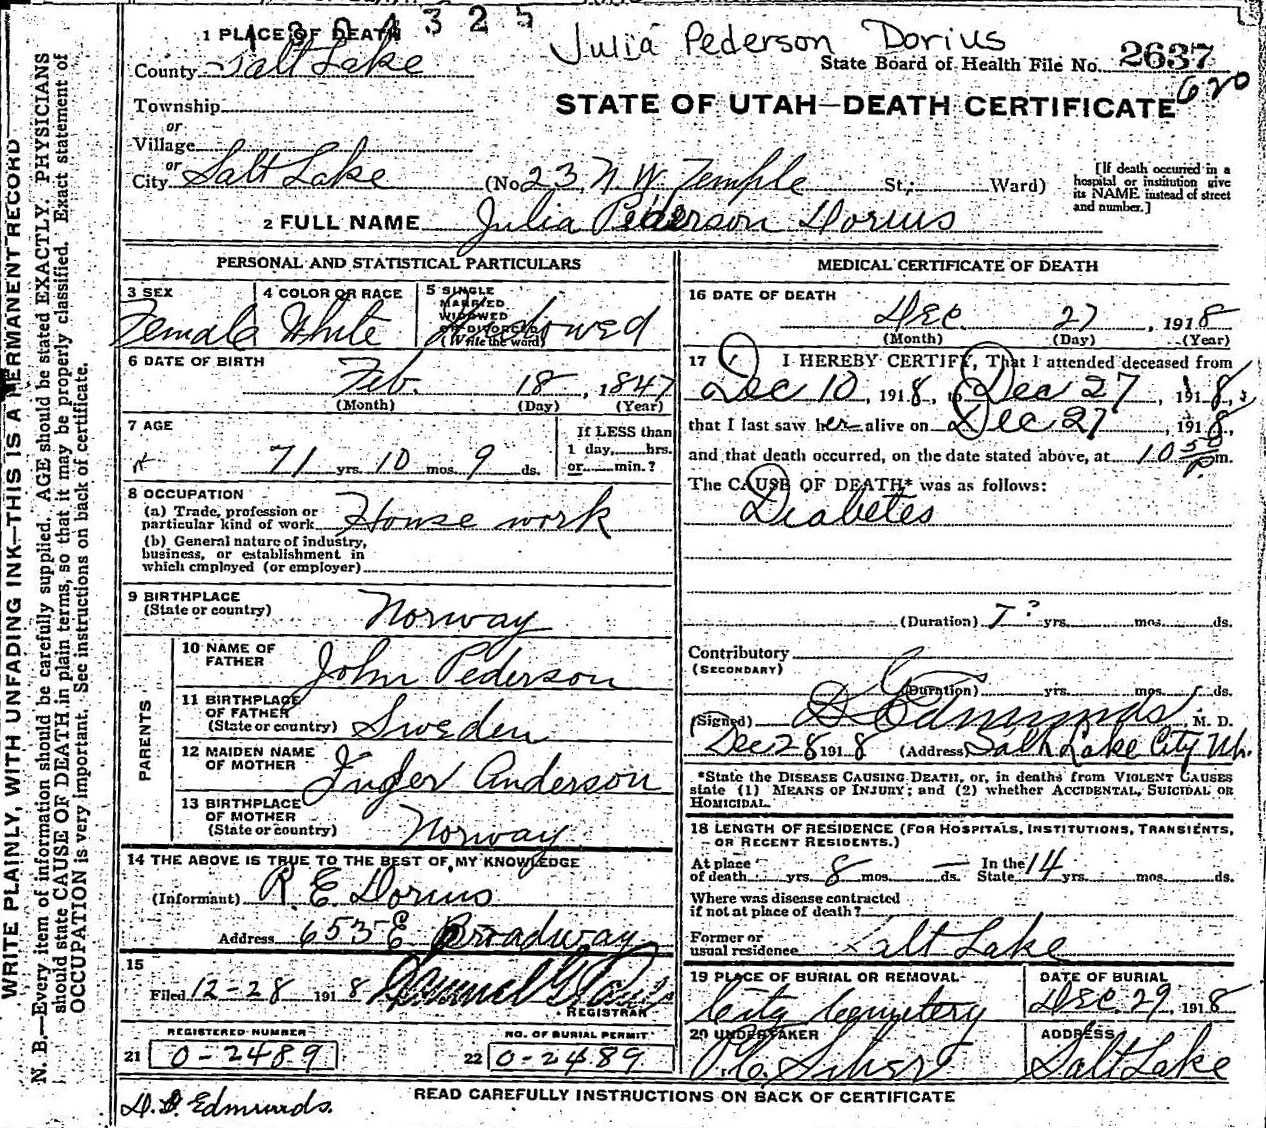 1804325
Julia Pederson Dorius
1 PLACE OF DEATH
County Salt Lake
State Board of Health File No. 2637
620
Township
or
Village
or
City Salt Lake
STATE OF UTAH—DEATH CERTIFICATE
(No. 23 N. W. Temple St.; Ward)
[If death occurred in a
hospital or institution give
its NAME instead of street
and number.]
2 FULL NAME Julia Pederson Dorius
PERSONAL AND STATISTICAL PARTICULARS
3 SEX
Female
4 COLOR OR RACE
White
5 SINGLE
MARRIED
WIDOWED
OR DIVORCED
(Write the word)
Widowed
6 DATE OF BIRTH
Feb. 18, 1847
(Month) (Day) (Year)
7 AGE
71 yrs. 10 mos. 9 ds.
If LESS than
1 day, hrs.
or min.?
8 OCCUPATION
(a) Trade, profession or
particular kind of work House work
(b) General nature of industry,
business, or establishment in
which employed (or employer)
9 BIRTHPLACE
(State or country) Norway
PARENTS
10 NAME OF
FATHER John Pederson
11 BIRTHPLACE
OF FATHER
(State or country) Sweden
12 MAIDEN NAME
OF MOTHER Inger Anderson
13 BIRTHPLACE
OF MOTHER
(State or country) Norway
14 THE ABOVE IS TRUE TO THE BEST OF MY KNOWLEDGE
(Informant) R. E. Dorius
Address 653 E Broadway
15
Filed 12-28 1918
REGISTRAR
REGISTERED NUMBER
21 0-2489
NO. OF BURIAL PERMIT
22 0-2489
MEDICAL CERTIFICATE OF DEATH
16 DATE OF DEATH
Dec. 27, 1918
(Month) (Day) (Year)
17 I HEREBY CERTIFY, That I attended deceased from
Dec 10, 1918, to Dec 27, 1918,
that I last saw her alive on Dec 27, 1918,
and that death occurred, on the date stated above, at 10 50 P. m.
The CAUSE OF DEATH* was as follows:
Diabetes
(Duration) 7? yrs. mos. ds.
Contributory
(SECONDARY)
(Duration) yrs. mos. ds.
(Signed) Edmunds, M. D.
Dec 28 1918 (Address) Salt Lake City Ut.
*State the DISEASE CAUSING DEATH, or, in deaths from VIOLENT CAUSES
state (1) MEANS OF INJURY; and (2) whether ACCIDENTAL, SUICIDAL OR
HOMICIDAL.
18 LENGTH OF RESIDENCE (FOR HOSPITALS, INSTITUTIONS, TRANSIENTS,
OR RECENT RESIDENTS.)
At place
of death yrs. 8 mos. — ds. In the
State 14 yrs. mos. ds.
Where was disease contracted
if not at place of death?
Former or
usual residence Salt Lake
19 PLACE OF BURIAL OR REMOVAL
City Cemetery
DATE OF BURIAL
Dec. 29, 1918
20 UNDERTAKER
ADDRESS
Salt Lake
READ CAREFULLY INSTRUCTIONS ON BACK OF CERTIFICATE
Edmunds.
WRITE PLAINLY, WITH UNFADING INK—THIS IS A PERMANENT RECORD
N. B.—Every item of information should be carefully supplied. AGE should be stated EXACTLY. PHYSICIANS
should state CAUSE OF DEATH in plain terms, so that it may be properly classified. Exact statement of
OCCUPATION is very important. See instructions on back of certificate.